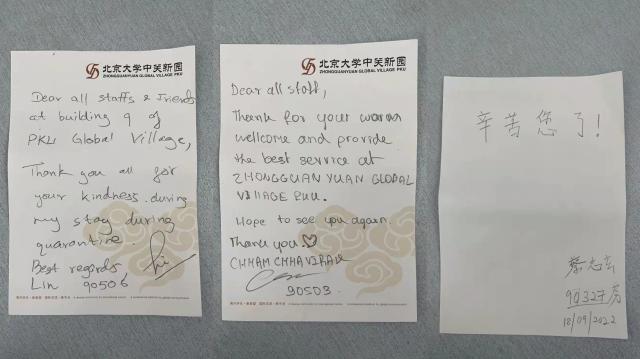 北京大学中关新园
ZHONGGUANYUAN GLOBAL VILLAGE PKU
Dear all staffs & friends
at building 9 of
PKU Global Village,
Thank you all for
your kindness during
my stay during
quarantine.
Best regards
Lin 90506
北京大学中关新园
ZHONGGUANYUAN GLOBAL VILLAGE PKU
Dear all staff,
Thank for your warm
wellcome and provide
the best service at
ZHONGGUAN YUAN GLOBAL
VILLAGE PKU.
Hope to see you again.
Thank you
CHHAM CHHAVIRAK
90503.
辛苦您了!
18/09/2022